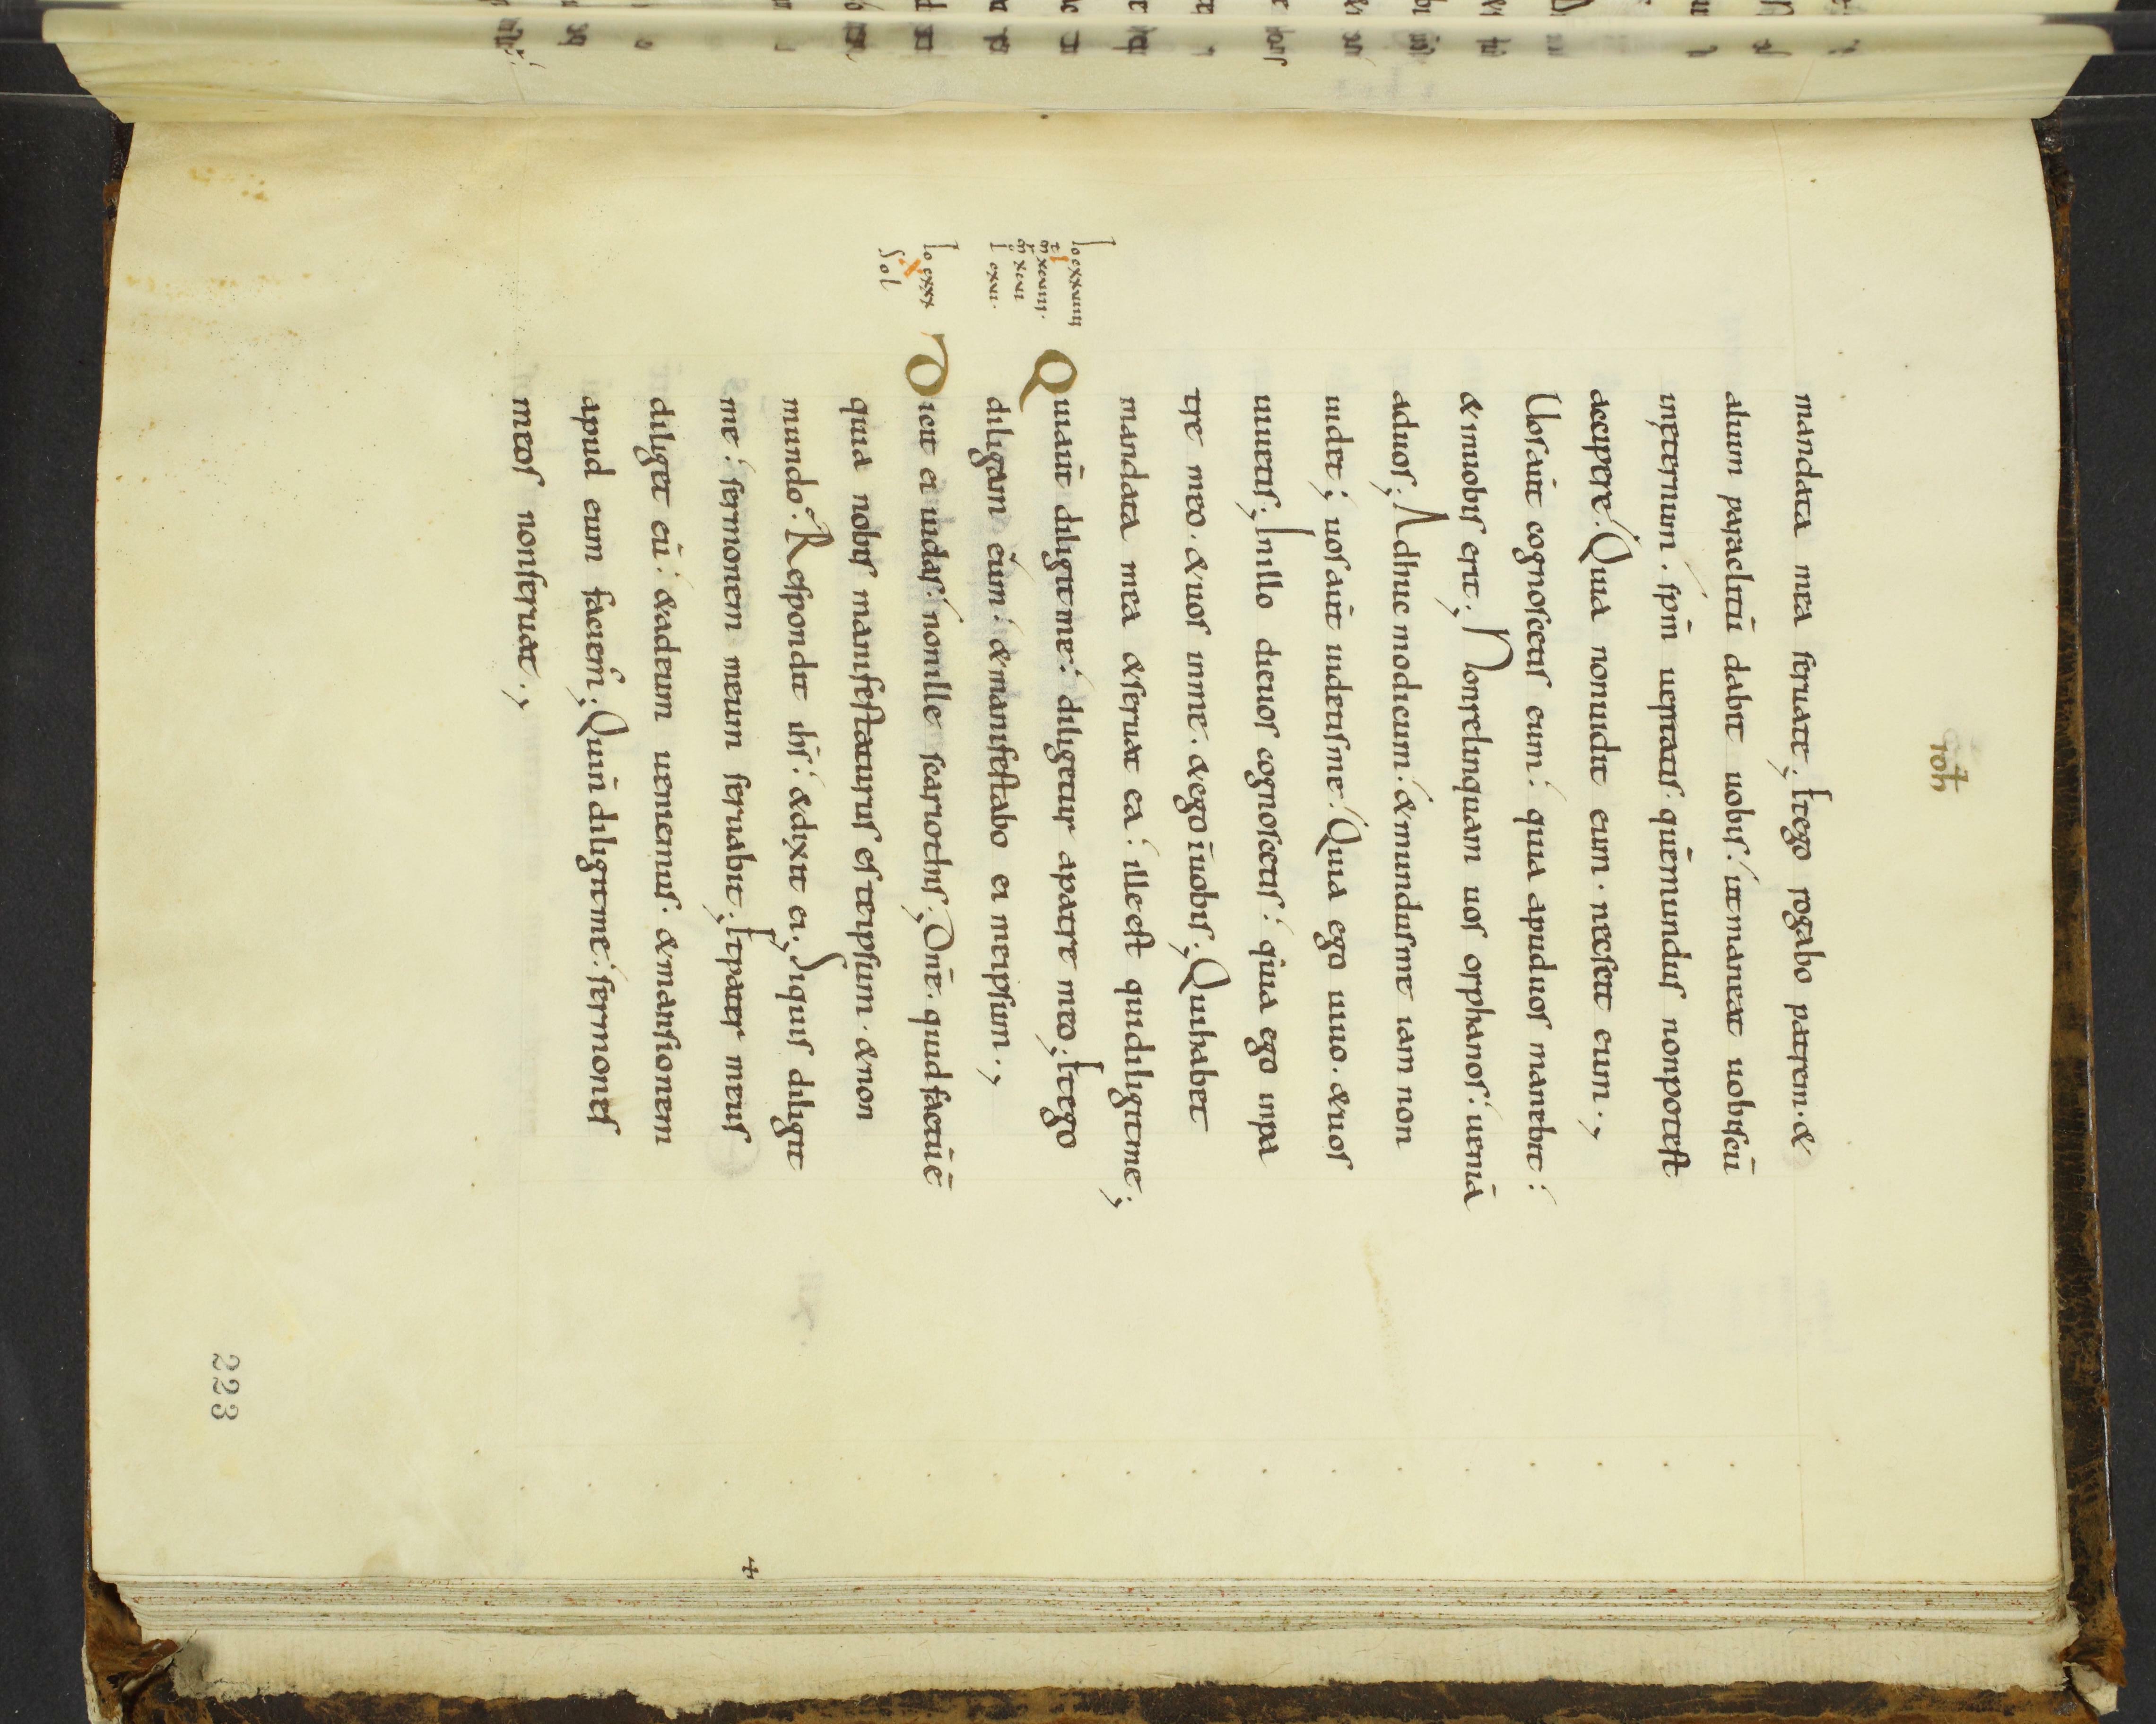 ioh
mandata mea seruate; Et ego rogabo patrem. &
alium paraclitū dabit uobis. ut maneat uobiscū
inęternum. spm̄ ueritatis. quēmundus nonpotest
accipere. Quia nonuidit eum. necscit eum.,
Uosaut̄ cognoscetis eum. quia apuduos manebit.
&inuobis erit; Nonrelinquam uos orphanos. ueniā
aduos; Adhuc modicum. &mundusme iam non
uidet; uosaut̄ uidetisme. Quia ego uiuo. &uos
uiuetis; Inillo dieuos cognoscetis. quia ego inpa
tre meo. &uos inme. &ego īuobis; Quihabet
mandata mea &seruat ea. illeest quidiligitme;
lo cxxuiiii
mt xcuiii.
mr xcui
l cxui.
Quiaut̄ diligitme. diligetur apatre meo; Et ego
diligam eum. &manifestabo ei meipsum.,
lo cxxx
x
Sol
Dicit ei iudas. nonille scariothis; Dn̄e. quidfactūē
quia nobis manifestaturus es teipsum. &non
mundo. Respondit ihs̄. &dixit ei; Siquis diligit
me. sermonem meum seruabit; Et pater meus
diliget eū. &adeum ueniemus. &mansionem
apud eum faciem; Quin̄ diligitme. sermones
meos nonseruat.,
223